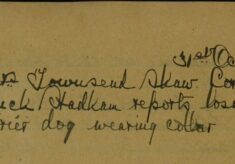 31st Oc
rs Townsend Shaw Cor
uck Hadkam reports los
rier dog wearing collar